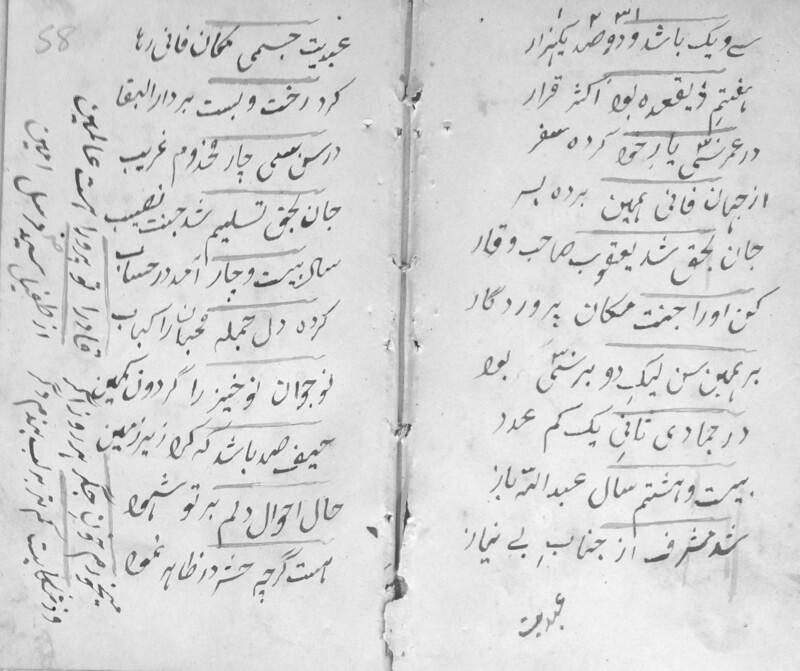 ۱ ۲ ۳۱
سے و یک باشد و دو صد یکہزار
ہفتم ذیقعدہ بود اکثر قرار
در عمر سی یا برجوا کردہ سفر
از جہان فانی ہمین بردہ بسر
جان بحق شد یعقوب صاحب وقار
کن اورا جنت مکان پروردگار
بر ہمین سن لیک دو بر سی بود
در جمادی ثانی یک کم عدد
بیست و ہشتم سال عبداللہ باز
شد مشرف از جناب بے نیاز
عبدیت
58
عبدیت جسمی مکان فانی رہا
کرد رخت و بست بر دار البقا
در سن سی چار مخذوم غریب
جان بحق تسلیم شد جنت نصیب
سال بیست و چار آمد در حساب
کردہ دل جملہ محبان را کباب
نوجوان نوخیز را گردون کمین
حیف صد باشد کہ کرد زیر زمین
حال احوال دلم بر تو شہود
ہست گرچہ در ظاہر نمود
میخورم خون جگر ہر روز اگر
ور شکایت کم تر بر لب نہم دگر
قادرا تو پرور است عالمین
از طفیل سید مرسل امین